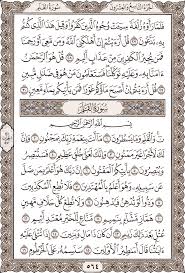 سورة القلم
الجزء التاسع والعشرون
فَلَمَّا رَأَوْهُ زُلْفَةً سِيٓـَٔتْ وُجُوهُ ٱلَّذِينَ كَفَرُوا۟ وَقِيلَ هَـٰذَا ٱلَّذِى كُنتُم
بِهِۦ تَدَّعُونَ ٢٧ قُلْ أَرَءَيْتُمْ إِنْ أَهْلَكَنِىَ ٱللَّهُ وَمَن مَّعِىَ أَوْ رَحِمَنَا
فَمَن يُجِيرُ ٱلْكَـٰفِرِينَ مِنْ عَذَابٍ أَلِيمٍ ٢٨ قُلْ هُوَ ٱلرَّحْمَـٰنُ
ءَامَنَّا بِهِۦ وَعَلَيْهِ تَوَكَّلْنَا فَسَتَعْلَمُونَ مَنْ هُوَ فِى ضَلَـٰلٍ مُّبِينٍ
٢٩ قُلْ أَرَءَيْتُمْ إِنْ أَصْبَحَ مَآؤُكُمْ غَوْرًا فَمَن يَأْتِيكُم بِمَآءٍ مَّعِينٍ ٣٠
سُورَةُ القَلَمِ
بِسْمِ ٱللَّهِ ٱلرَّحْمَـٰنِ ٱلرَّحِيمِ
نٓ وَٱلْقَلَمِ وَمَا يَسْطُرُونَ ١ مَآ أَنتَ بِنِعْمَةِ رَبِّكَ بِمَجْنُونٍ ٢ وَإِنَّ
لَكَ لَأَجْرًا غَيْرَ مَمْنُونٍ ٣ وَإِنَّكَ لَعَلَىٰ خُلُقٍ عَظِيمٍ ٤ فَسَتُبْصِرُ
وَيُبْصِرُونَ ٥ بِأَييِّكُمُ ٱلْمَفْتُونُ ٦ إِنَّ رَبَّكَ هُوَ أَعْلَمُ بِمَن ضَلَّ
عَن سَبِيلِهِۦ وَهُوَ أَعْلَمُ بِٱلْمُهْتَدِينَ ٧ فَلَا تُطِعِ ٱلْمُكَذِّبِينَ ٨
وَدُّوا۟ لَوْ تُدْهِنُ فَيُدْهِنُونَ ٩ وَلَا تُطِعْ كُلَّ حَلَّافٍ مَّهِينٍ ١٠
هَمَّازٍ مَّشَّآءٍۭ بِنَمِيمٍ ١١ مَّنَّاعٍ لِّلْخَيْرِ مُعْتَدٍ أَثِيمٍ ١٢ عُتُلٍّۭ
بَعْدَ ذَٰلِكَ زَنِيمٍ ١٣ أَن كَانَ ذَا مَالٍ وَبَنِينَ ١٤ إِذَا تُتْلَىٰ عَلَيْهِ
ءَايَـٰتُنَا قَالَ أَسَـٰطِيرُ ٱلْأَوَّلِينَ ١٥ سَنَسِمُهُۥ عَلَى ٱلْخُرْطُومِ ١٦
٥٦٤